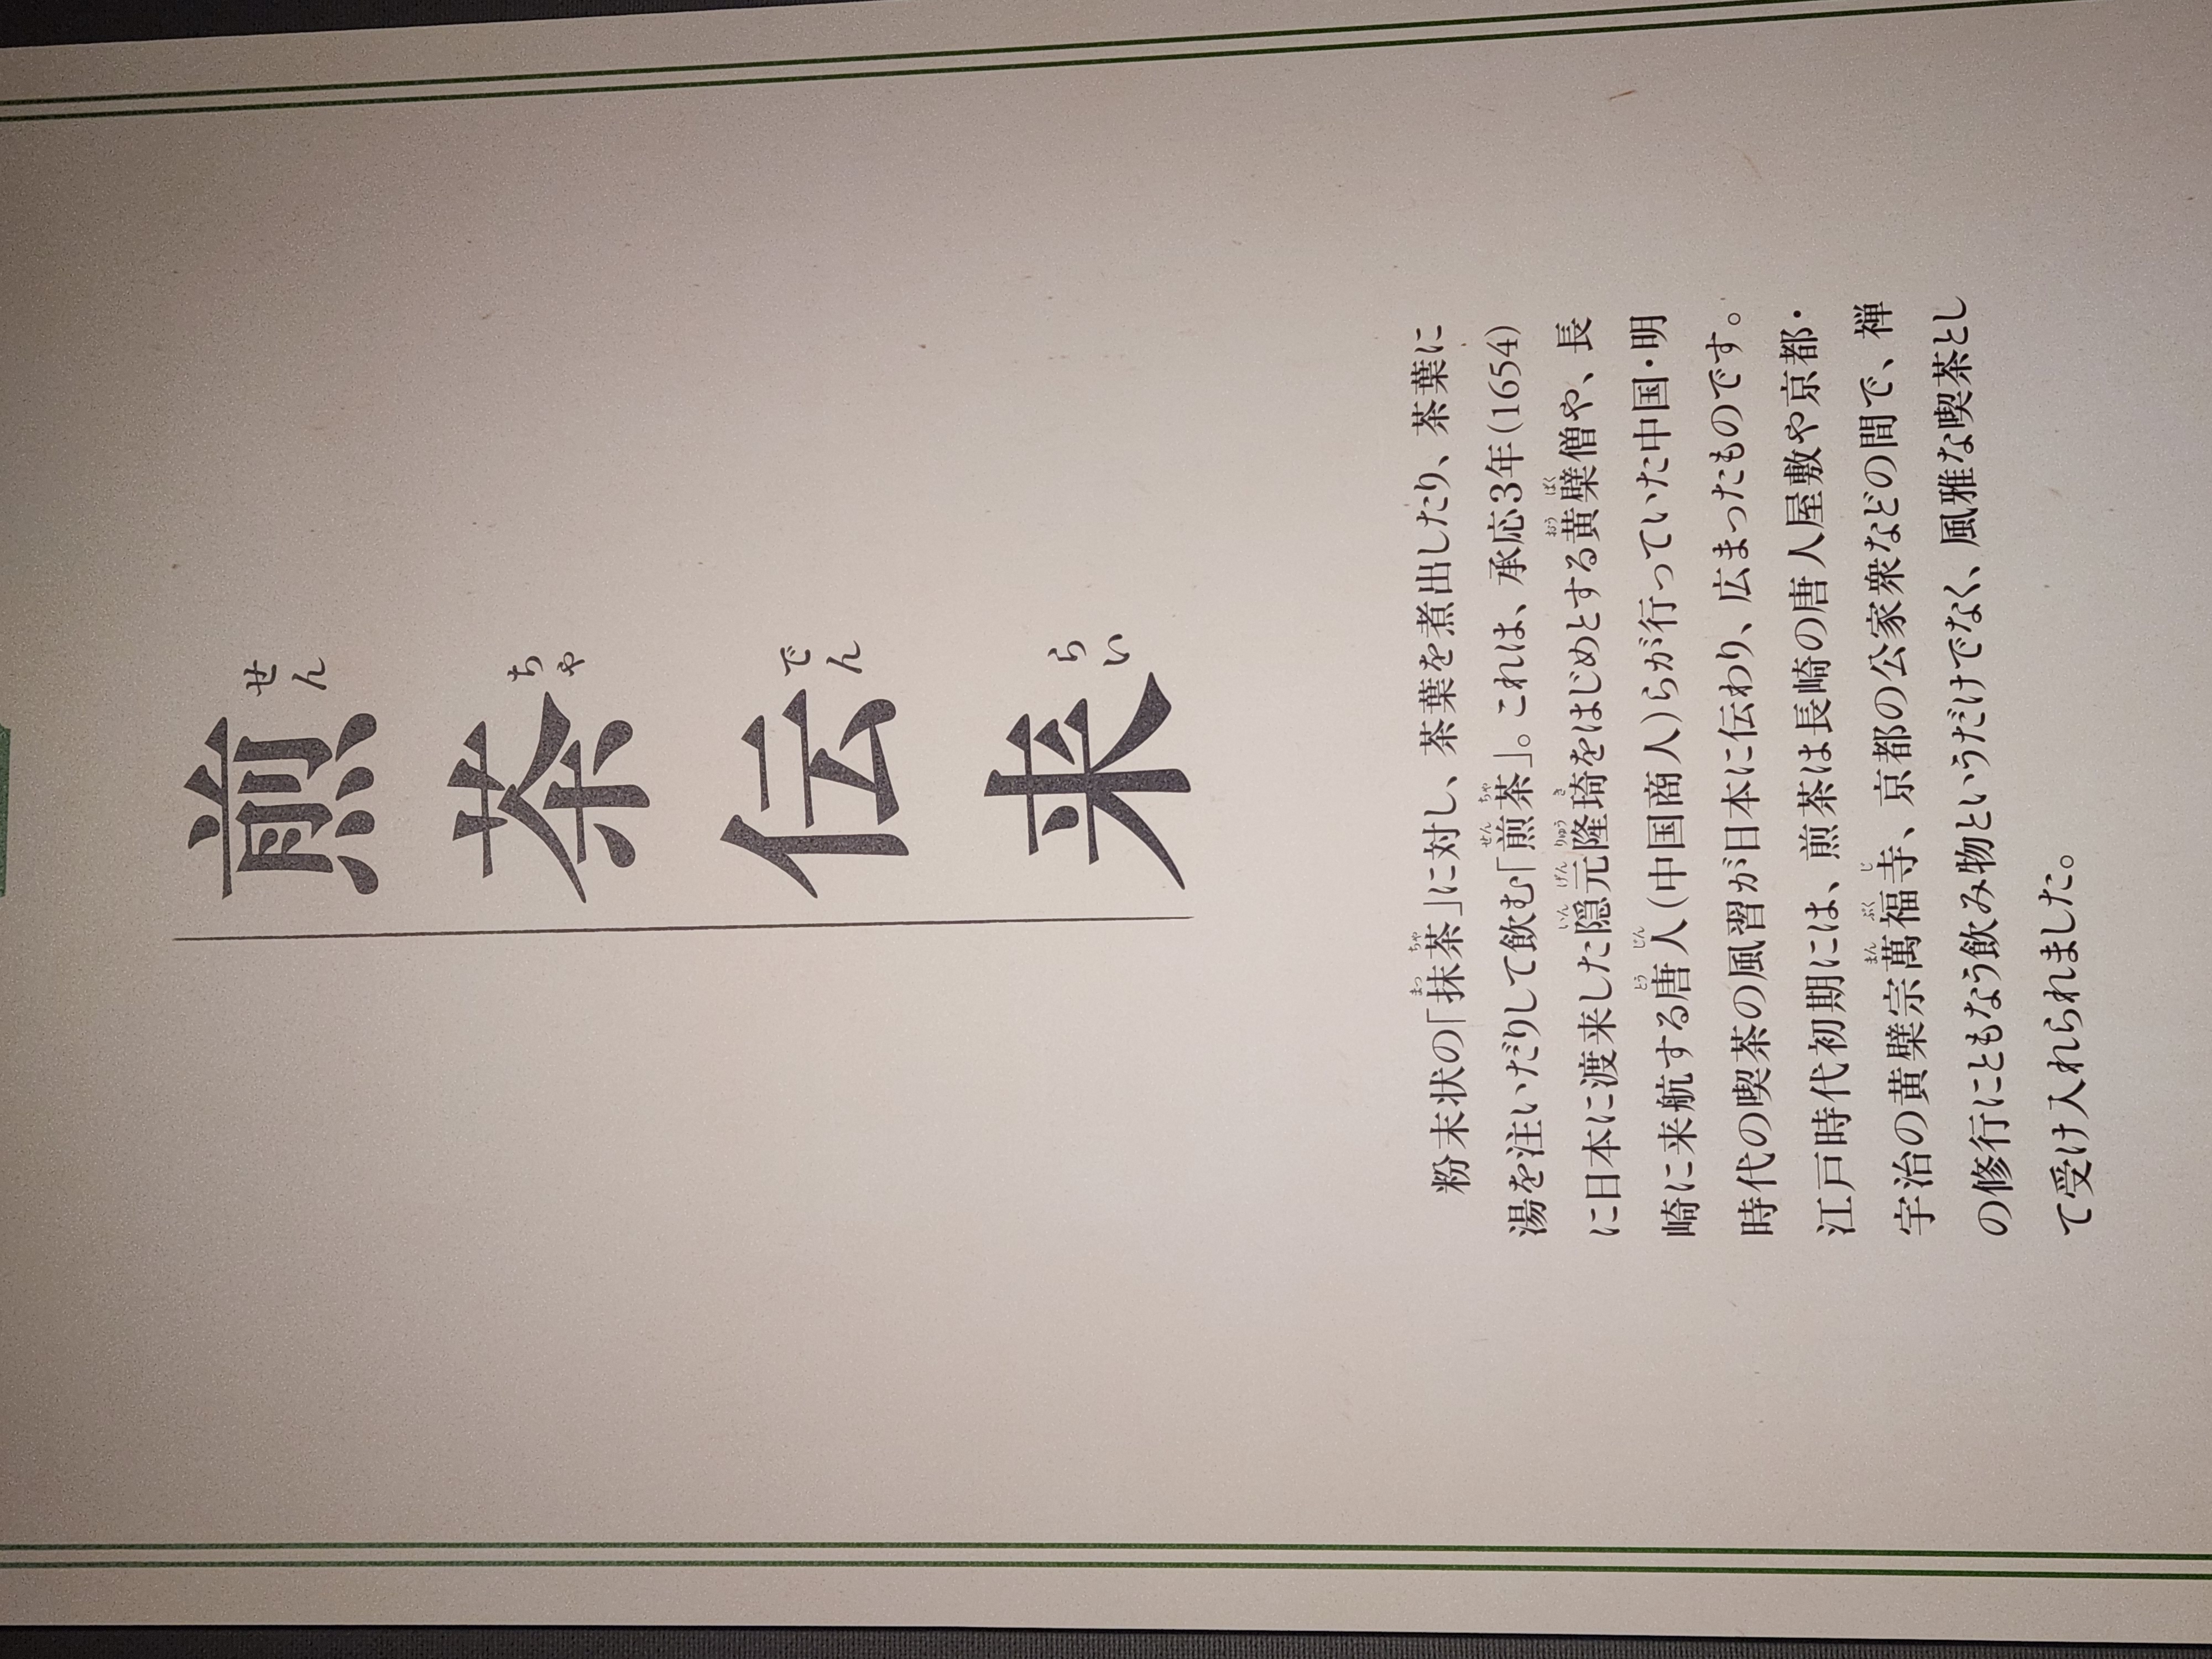 煎茶伝来
せんちゃでんらい
粉末状の「抹茶」に対し、茶葉を煮出したり、茶葉に
湯を注いだりして飲む「煎茶」。これは、承応3年(1654)
に日本に渡来した隠元隆琦をはじめとする黄檗僧や、長
崎に来航する唐人(中国商人)らが行っていた中国・明
時代の喫茶の風習が日本に伝わり、広まったものです。
江戸時代初期には、煎茶は長崎の唐人屋敷や京都・
宇治の黄檗宗萬福寺、京都の公家衆などの間で、禅
の修行にともなう飲み物というだけでなく、風雅な喫茶とし
て受け入れられました。